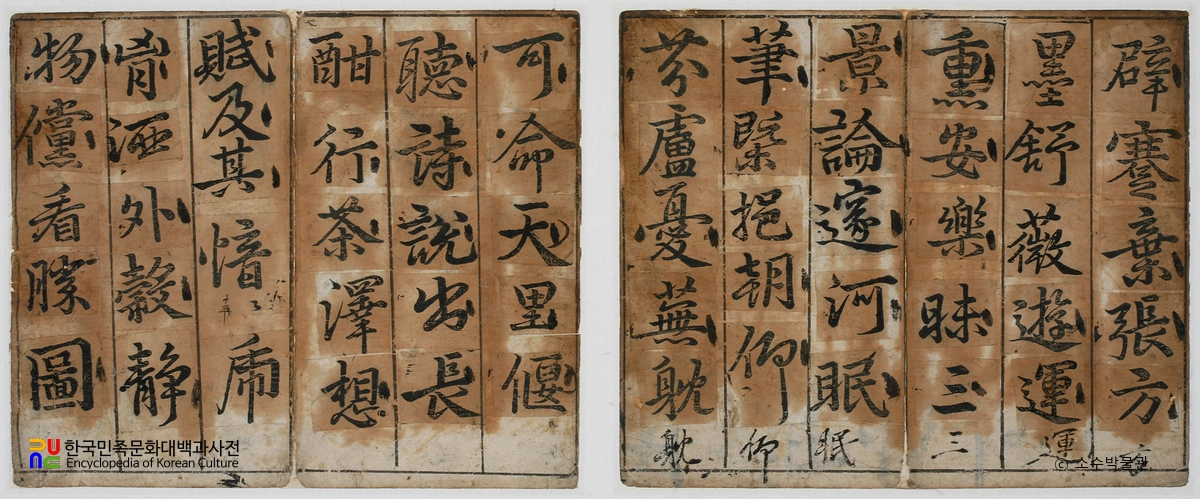 辟寋棄張方
墨舒薇遊運
運
熏安樂昧三
三
景論邃河眠
眠
筆槩挹朝仰
仰
芬盧憂蕪躭
躭
可命天里偃
聽詩說出長
酣行茶澤想
賦及其愔席
肯酒外穀靜
物儻看勝圖
한국민족문화대백과사전
Encyclopedia of Korean Culture
© 소수박물관